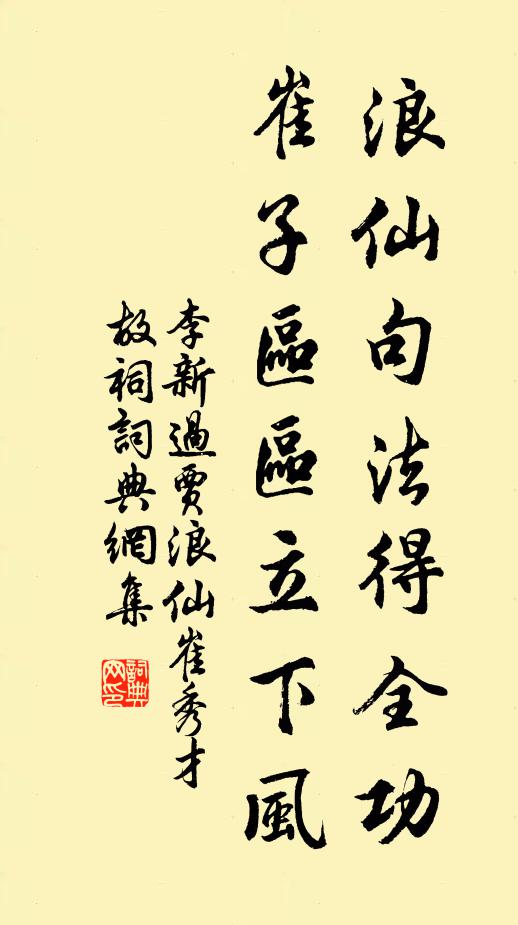 浪仙句法得全功
崔子區區立下風
李新過賈浪仙崔秀才
故祠詞典網集
詞典
网印